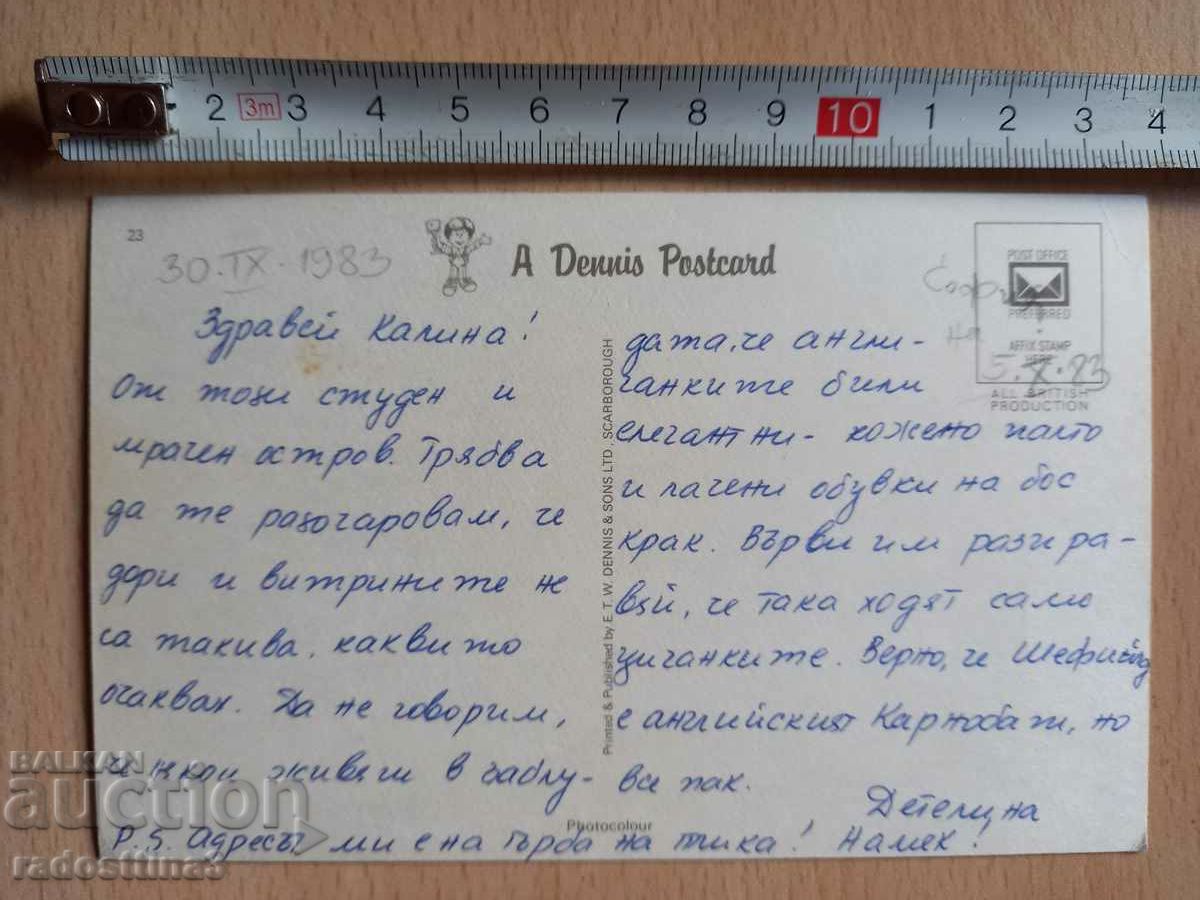 2 3m 3 4 5 6 7 8 9 10 1 2 3 4
23
30.IX.1983
A Dennis Postcard
POST OFFICE
PREFERRED
AFFIX STAMP
HERE
ALL BRITISH
PRODUCTION
София
на
5.X.83
Здравей Калина!
От този студен и
мрачен остров. Трябва
да те разочаровам, че
дори и витрините не
са такива, каквито
очаквах. Да не говорим,
че някои живяли в заблу-
Printed & Published by E. T. W. DENNIS & SONS LTD., SCARBOROUGH
дата, че англи-
чанките били
елегантни - кожено палто
и лачени обувки на бос
крак. Върви им разпра-
вяй, че така ходят само
циганките. Верно, че Шефийлд
е английският Карнобат, но
все пак.
Детелина
Photocolour
P.S. Адресът ми е на гърба на плика! Намек!
BALKAN
auction
radosttina3